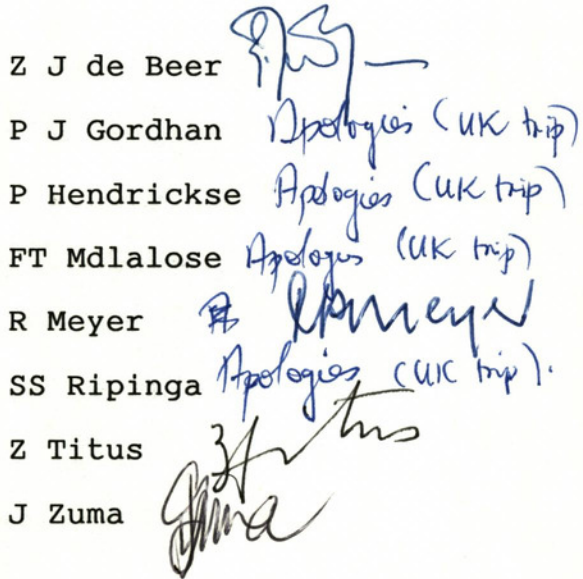 Z J de Beer
P J Gordhan Apologies (UK trip)
P Hendrickse Apologies (UK trip)
FT Mdlalose Apologies (UK trip)
R Meyer RPMeyer
SS Ripinga Apologies (UK trip).
Z Titus ZTitus
J Zuma JZuma